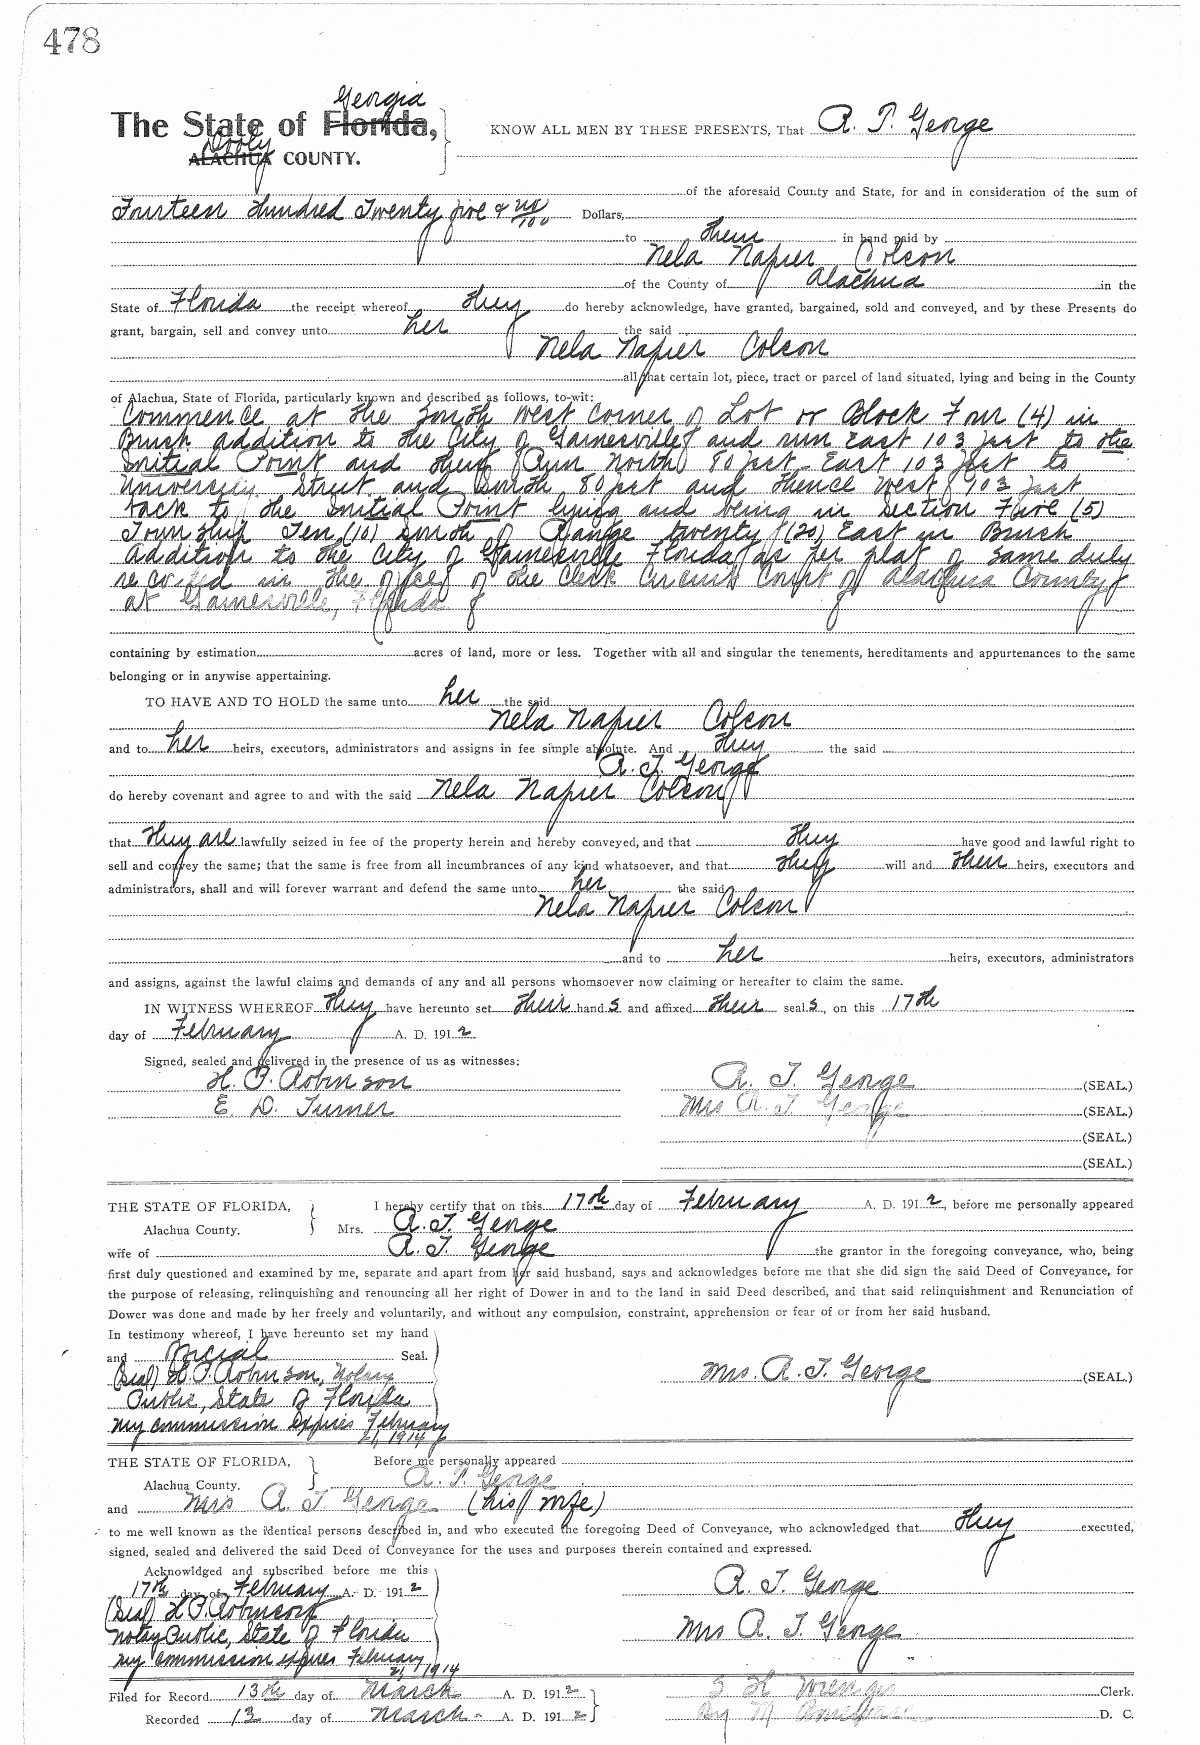 478
Georgia
The State of Florida,
Dooly
ALACHUA COUNTY.
KNOW ALL MEN BY THESE PRESENTS, That R. T. George
of the aforesaid County and State, for and in consideration of the sum of
Fourteen Hundred Twenty five & no/100 Dollars,
to them in hand paid by
Nela Napier Colson
of the County of Alachua in the
State of Florida the receipt whereof they do hereby acknowledge, have granted, bargained, sold and conveyed, and by these Presents do
grant, bargain, sell and convey unto her the said
Nela Napier Colson
all that certain lot, piece, tract or parcel of land situated, lying and being in the County
of Alachua, State of Florida, particularly known and described as follows, to-wit:
Commence at the South West corner of Lot or Block Four (4) in
Brush addition to the City of Gainesville and run East 103 feet to the
Initial Point and then Run North 80 feet East 103 feet to
University Street and South 80 feet and thence West 103 feet
back to the Initial Point lying and being in Section Five (5)
Township Ten (10) South of Range twenty (20) East in Brush
Addition to the City of Gainesville Florida as per plat of same duly
recorded in the office of the Clerk Circuit Court of Alachua County
at Gainesville, Florida
containing by estimation acres of land, more or less. Together with all and singular the tenements, hereditaments and appurtenances to the same
belonging or in anywise appertaining.
TO HAVE AND TO HOLD the same unto her the said
Nela Napier Colson
and to her heirs, executors, administrators and assigns in fee simple absolute. And they the said
R. T. George
do hereby covenant and agree to and with the said Nela Napier Colson
that they are lawfully seized in fee of the property herein and hereby conveyed, and that they have good and lawful right to
sell and convey the same; that the same is free from all incumbrances of any kind whatsoever, and that they will and their heirs, executors and
administrators, shall and will forever warrant and defend the same unto her the said
Nela Napier Colson
and to her heirs, executors, administrators
and assigns, against the lawful claims and demands of any and all persons whomsoever now claiming or hereafter to claim the same.
IN WITNESS WHEREOF they have hereunto set their hands and affixed their seals, on this 17th
day of February A. D. 1912
Signed, sealed and delivered in the presence of us as witnesses:
H. P. Robinson R. T. George (SEAL.)
E. D. Turner Mrs R. T. George (SEAL.)
(SEAL.)
(SEAL.)
THE STATE OF FLORIDA, I hereby certify that on this 17th day of February A. D. 1912, before me personally appeared
Alachua County. Mrs. R. T. George
wife of R. T. George the grantor in the foregoing conveyance, who, being
first duly questioned and examined by me, separate and apart from her said husband, says and acknowledges before me that she did sign the said Deed of Conveyance, for
the purpose of releasing, relinquishing and renouncing all her right of Dower in and to the land in said Deed described, and that said relinquishment and Renunciation of
Dower was done and made by her freely and voluntarily, and without any compulsion, constraint, apprehension or fear of or from her said husband.
In testimony whereof, I have hereunto set my hand
and official Seal.
(Seal) H. P. Robinson, Notary Mrs. R. T. George (SEAL.)
Public, State of Florida
My commission expires February
21, 1914
THE STATE OF FLORIDA, Before me personally appeared
Alachua County. R. T. George
and Mrs R. T. George (his wife)
to me well known as the identical persons described in, and who executed the foregoing Deed of Conveyance, who acknowledged that they executed,
signed, sealed and delivered the said Deed of Conveyance for the uses and purposes therein contained and expressed.
Acknowldged and subscribed before me this
17th day of February A. D. 1912 R. T. George
(Seal) H P. Robinson
Notay Public, State of Florida Mrs R. T. George
My commission expires February
21, 1914
Filed for Record 13th day of March A. D. 1912 S H Wienges Clerk.
Recorded 13 day of March A. D. 1912 By M D. C.